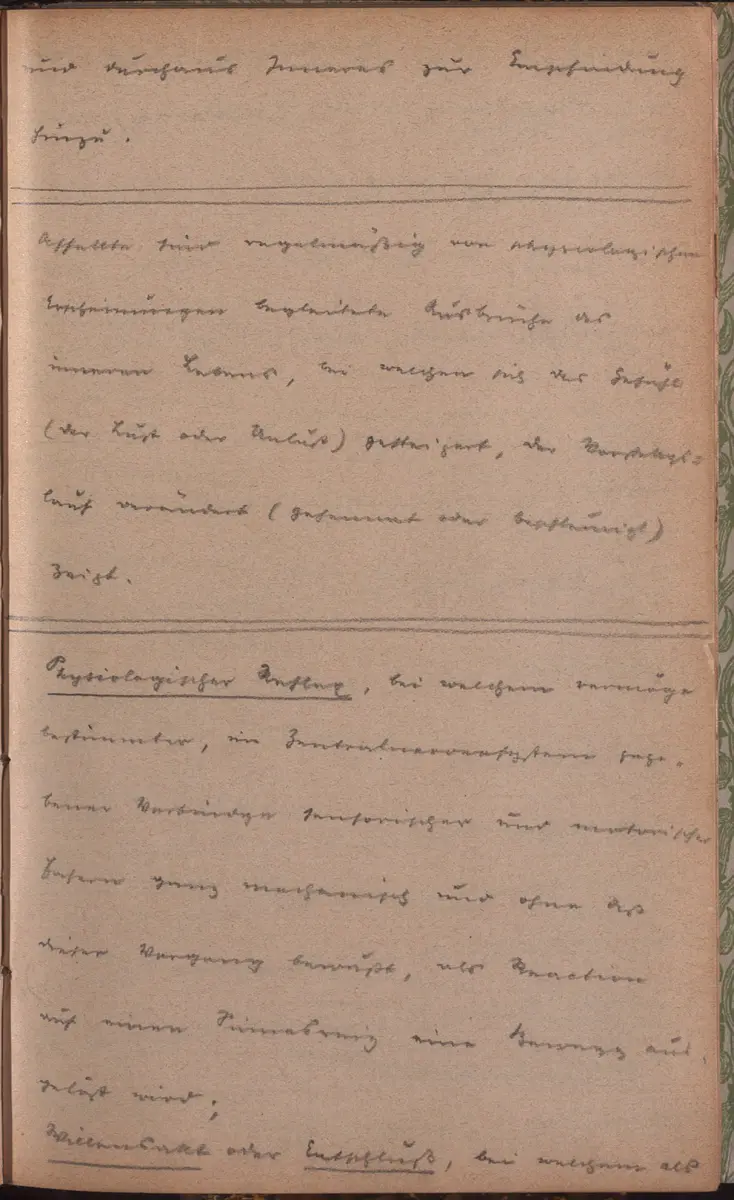 und durchaus Inneres zur Entscheidung
hinzu.
Affekte sind regelmäßig von physiologischen
Erscheinungen begleitete Ausbrüche des
inneren Lebens, bei welchen sich das Gefühl
(der Lust oder Unlust) gesteigert, der Vorstelgs=
lauf verändert (gehemmt oder beschleunigt)
zeigt.
Physiologischer Reflex, bei welchem vermöge
bestimmter, im Zentralnervensystem gege-
bener Verbindgn sensorischer und motorischer
Fasern ganz mechanisch und ohne daß
dieser Vorgang bewußt, als Reaction
auf einen Sinnesreiz eine Bewegg aus-
gelöst wird;
Willensakt oder Entschluß, bei welchem als